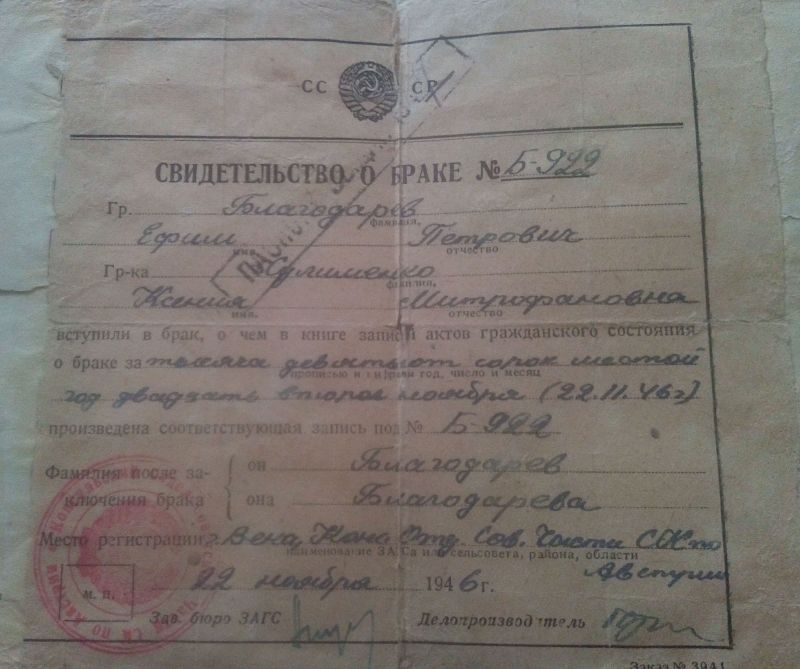 СС СР
СВИДЕТЕЛЬСТВО О БРАКЕ № Б-922
Гр. Благодарев
фамилия,
Ефим Петрович
имя отчество
Гр-ка
фамилия,
Ксения Митрофановна
имя. отчество
вступили в брак, о чем в книге записи актов гражданского состояния
о браке за тысяча девятьсот сорок шестой
прописью и цифрами год, число и месяц
год двадцать второе ноября (22.11.46г)
произведена соответствующая запись под № Б-922
Фамилия после за-
ключения брака
он Благодарев
она Благодарева
Место регистрации г. Вена, Конс. Отд. Сов. Части СК по
наименование ЗАГСа или сельсовета, района, области
Австрии
22 ноября 1946 г.
м. п.
Зав. бюро ЗАГС Делопроизводитель
Заказ № 3941